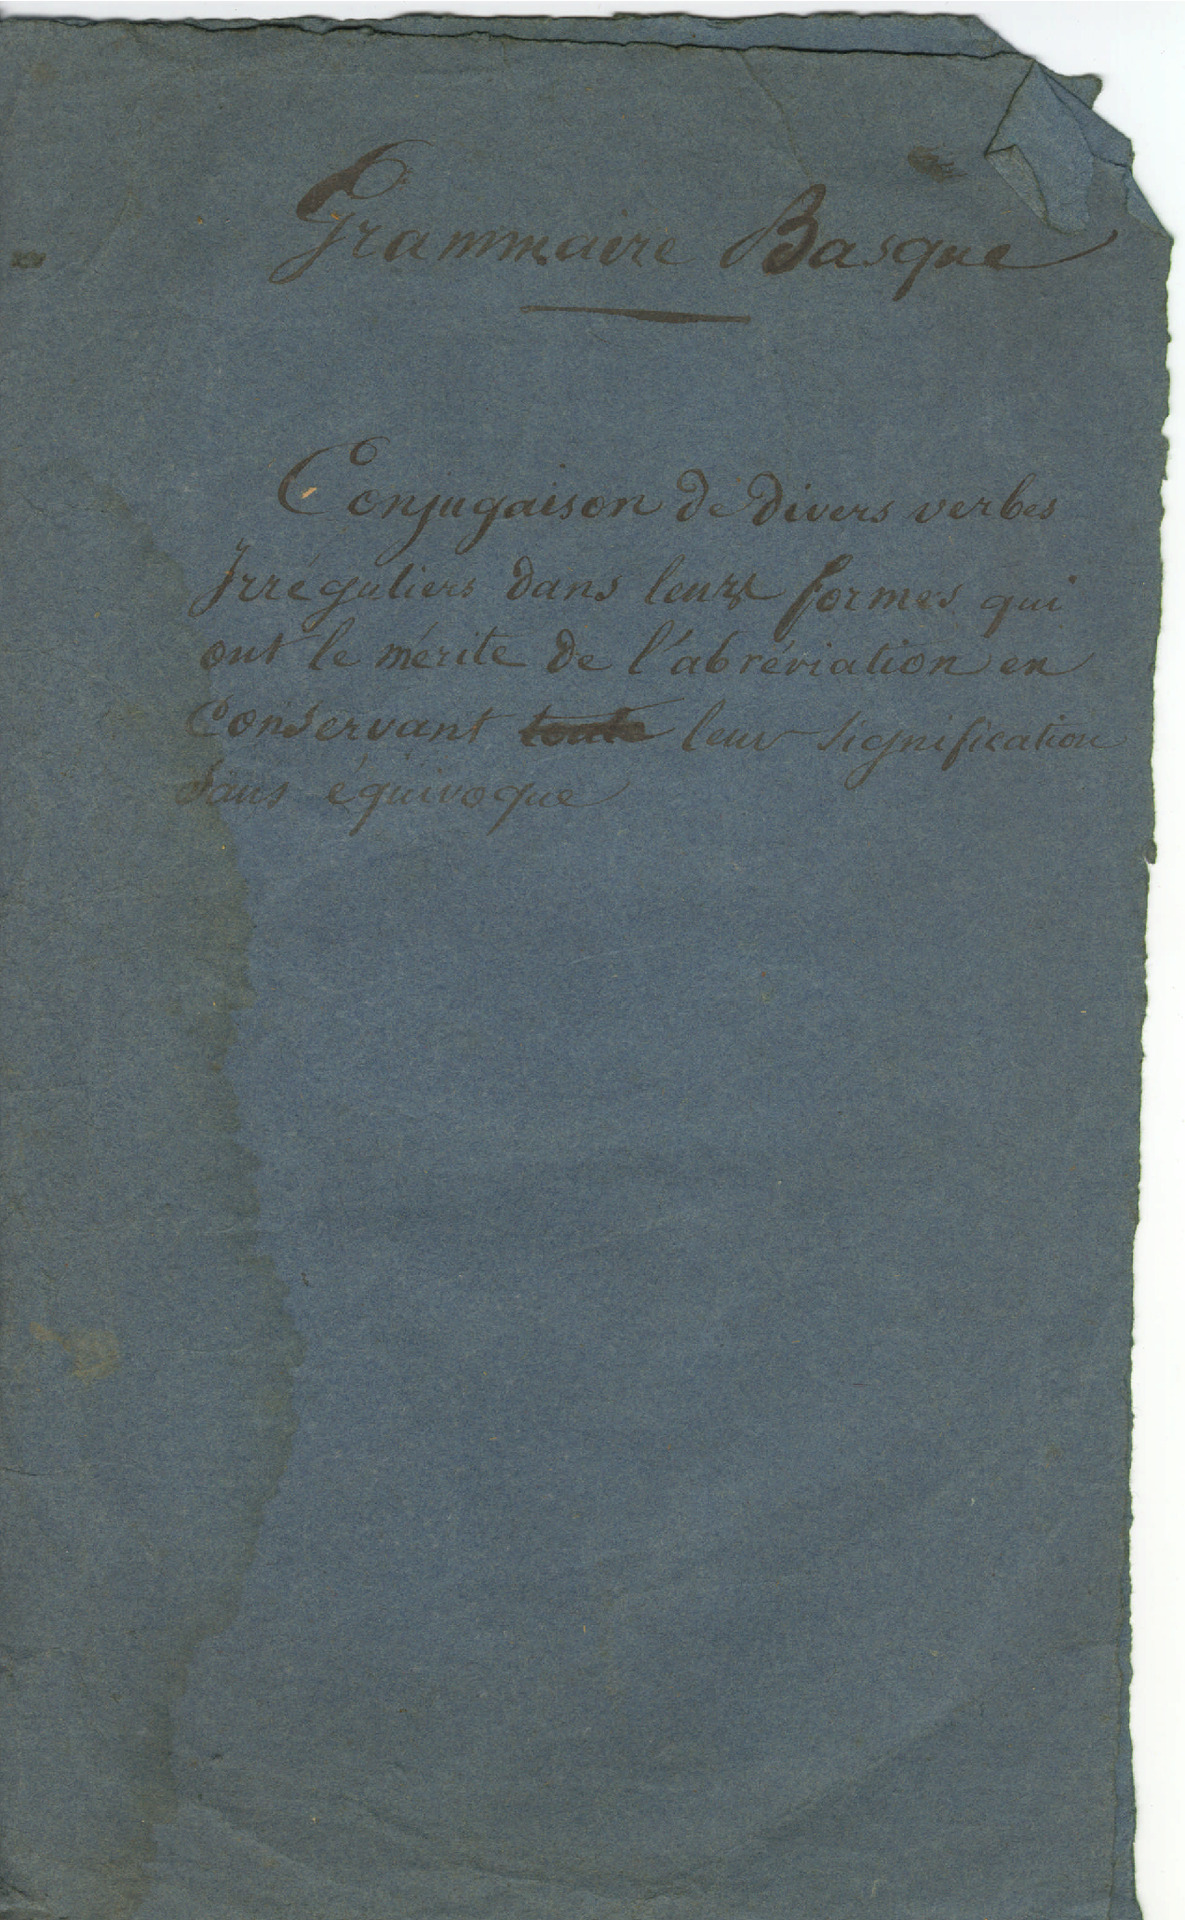 Grammaire Basque
Conjugaison de divers verbes
Irréguliers dans leurs formes qui
ont le mérite de l'abréviation en
Conservant toute leur signification
sans équivoque